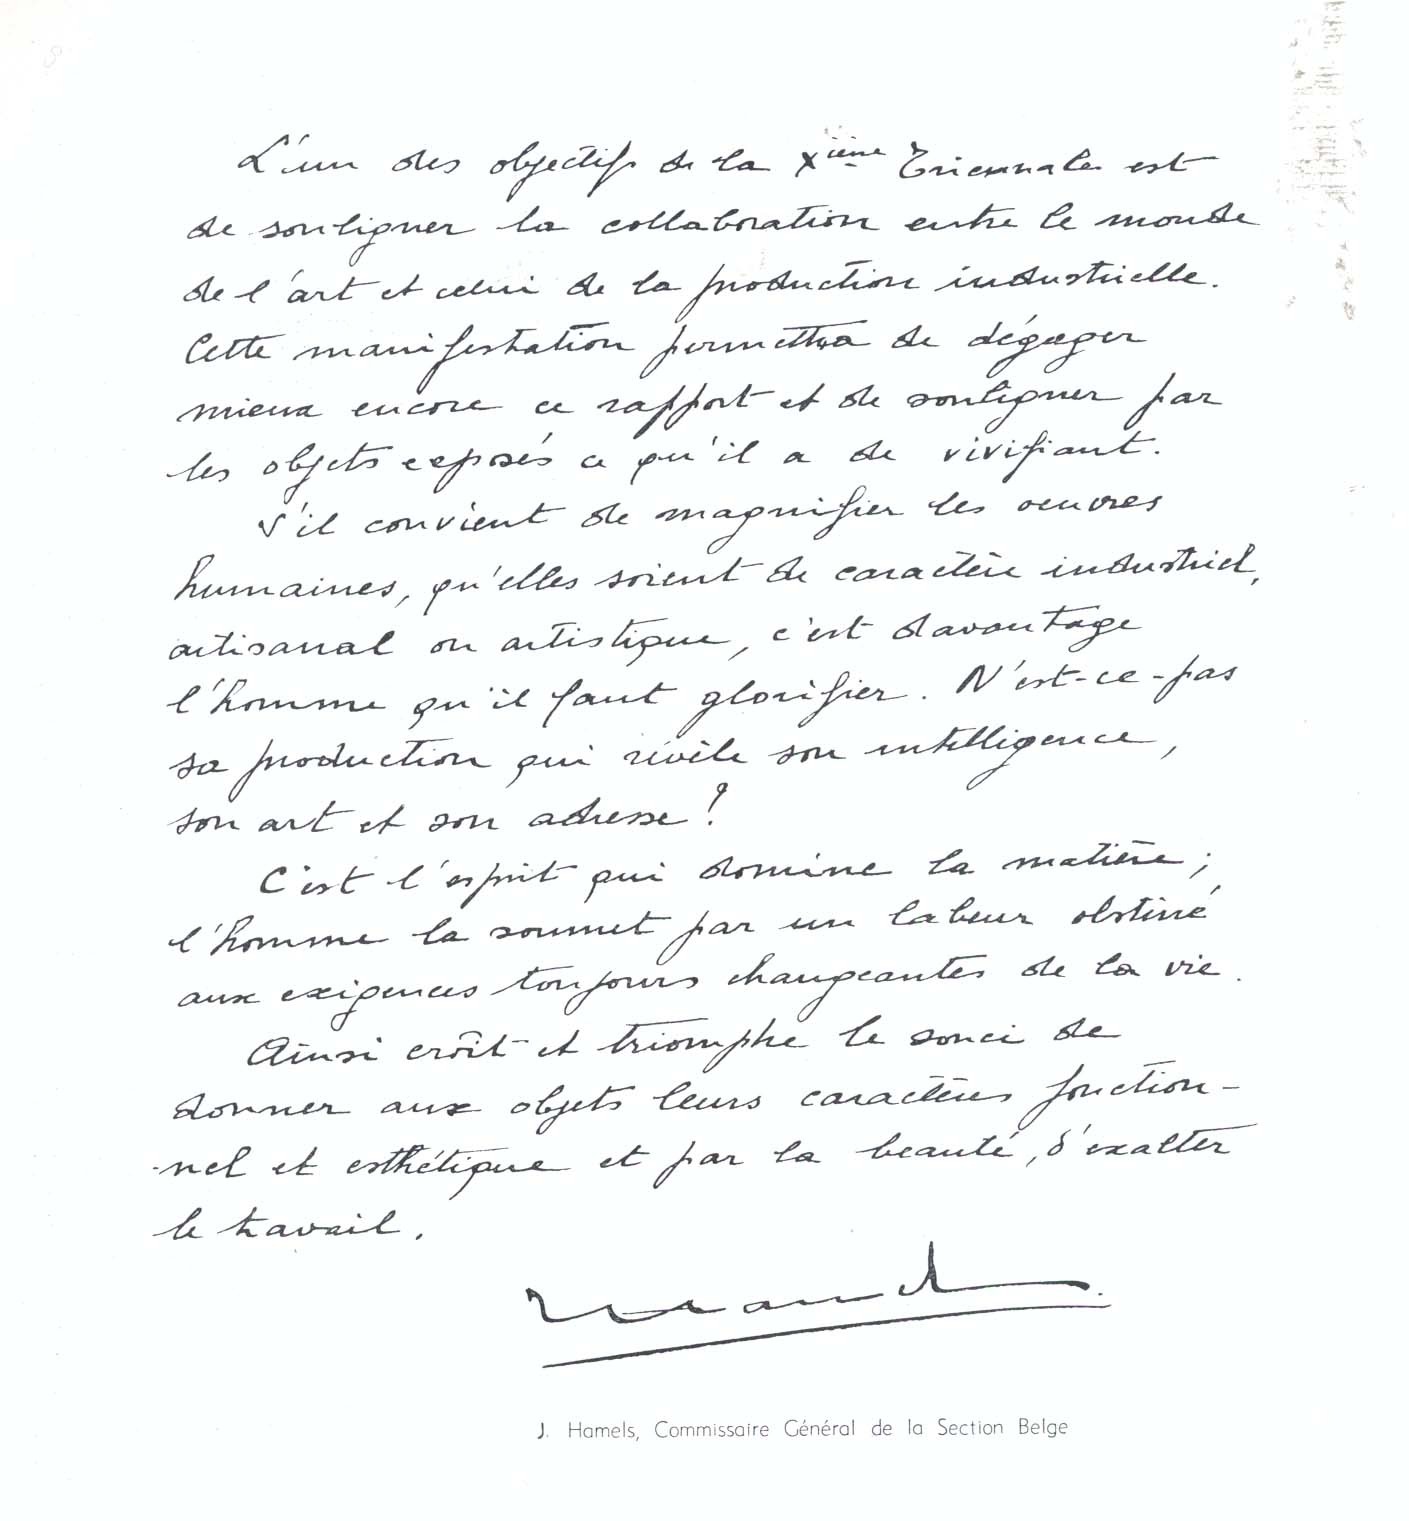 L'un des objectifs de la Xième Triennale est
de souligner la collaboration entre le monde
de l'art et celui de la production industrielle.
Cette manifestation permettra de dégager
mieux encore ce rapport et de souligner par
les objets exposés ce qu'il a de vivifiant.
S'il convient de magnifier les oeuvres
humaines, qu'elles soient de caractère industriel,
artisanal ou artistique, c'est davantage
l'homme qu'il faut glorifier. N'est-ce-pas
sa production qui révèle son intelligence,
son art et son adresse ?
C'est l'esprit qui domine la matière ;
l'homme la soumet par un labeur obstiné
aux exigences toujours changeantes de la vie.
Ainsi croît et triomphe le souci de
donner aux objets leurs caractères fonction-
-nel et esthétique et par la beauté, d'exalter
le travail.
J. Hamels, Commissaire Général de la Section Belge